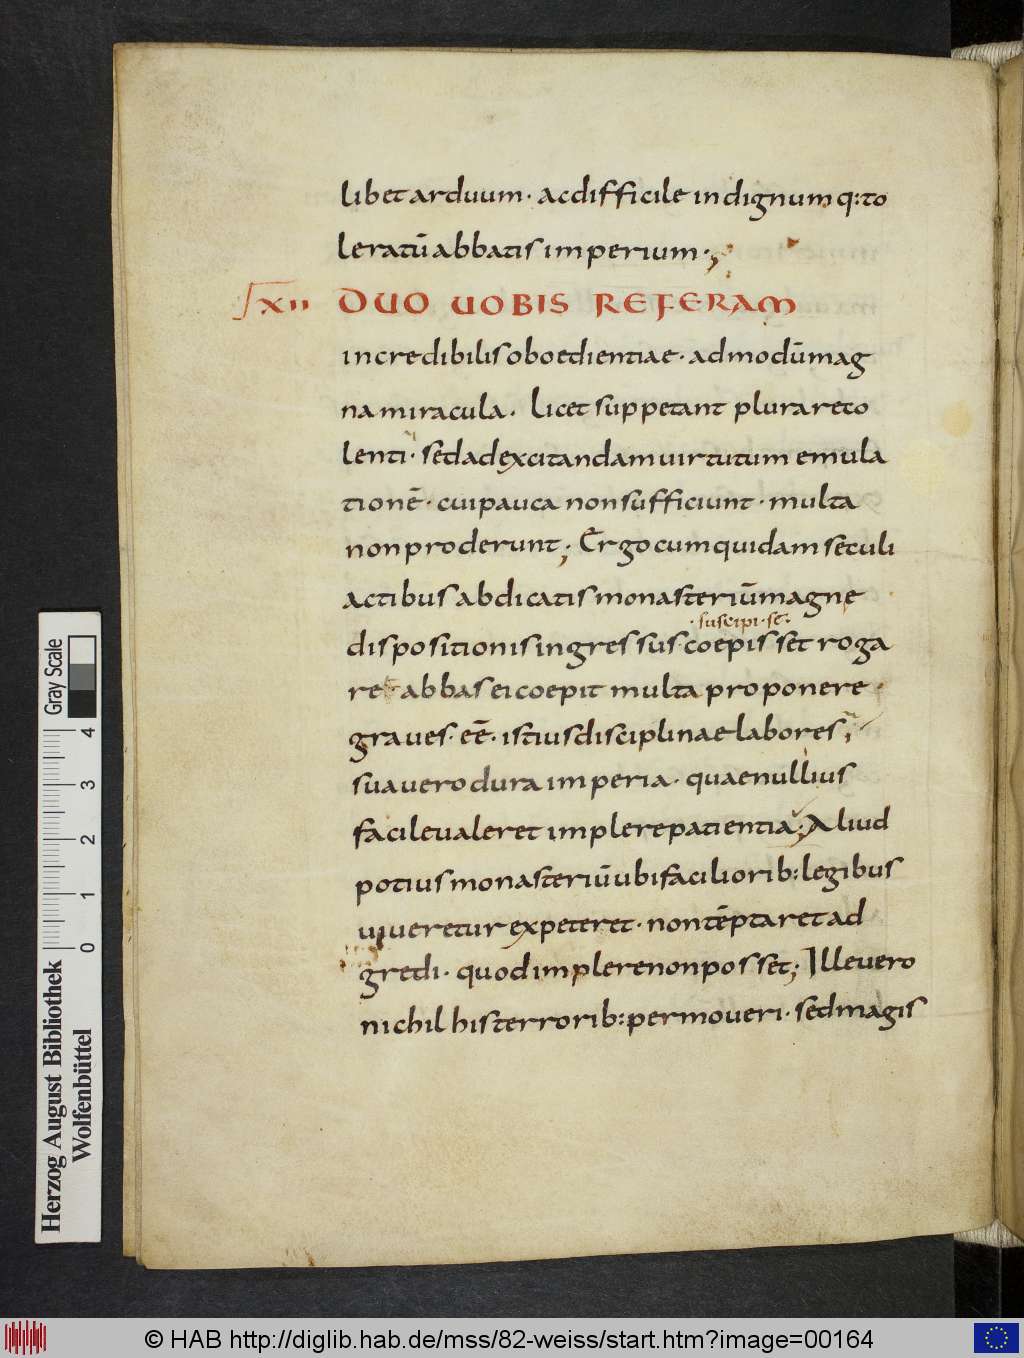 libet arduum · ac difficile indignumq: to
leratū abbatis imperium ·,
xii DUO UOBIS REFERAM
incredibilis oboedientiae · admodū mag
na miracula . Licet suppetant plura reto
lenti · sed ad excitandam uirtutum emula
tionē · cui pauca non sufficiunt · multa
non proderunt ; Ergo cum quidam seculi
actibus abdicatis monasteriū magne
· suscipi · se ·
dispositionis ingressus · coepisset roga
re abbas ei coepit multa proponere ·
graues · eē · istius disciplinae labores ;
sua uero dura imperia · quae nullius
facile ualeret implere patientia ; Aliud
potius monasteriū ubi faciliorib: legibus
uiueretur expeteret · non tēptaret ad
gredi · quod implere non posset ; Ille uero
nichil his terrorib: permoueri · sed magis
Gray Scale
4
3
2
1
0
Herzog August Bibliothek
Wolfenbüttel
© HAB http://diglib.hab.de/mss/82-weiss/start.htm?image=00164